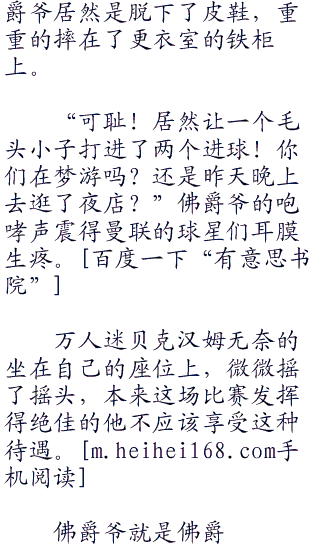 爵爷居然是脱下了皮鞋，重
重的摔在了更衣室的铁柜
上。
“可耻！居然让一个毛
头小子打进了两个进球！你
们在梦游吗？还是昨天晚上
去逛了夜店？”佛爵爷的咆
哮声震得曼联的球星们耳膜
生疼。[百度一下“有意思书
院”]
万人迷贝克汉姆无奈的
坐在自己的座位上，微微摇
了摇头，本来这场比赛发挥
得绝佳的他不应该享受这种
待遇。[m.heihei168.com手
机阅读]
佛爵爷就是佛爵